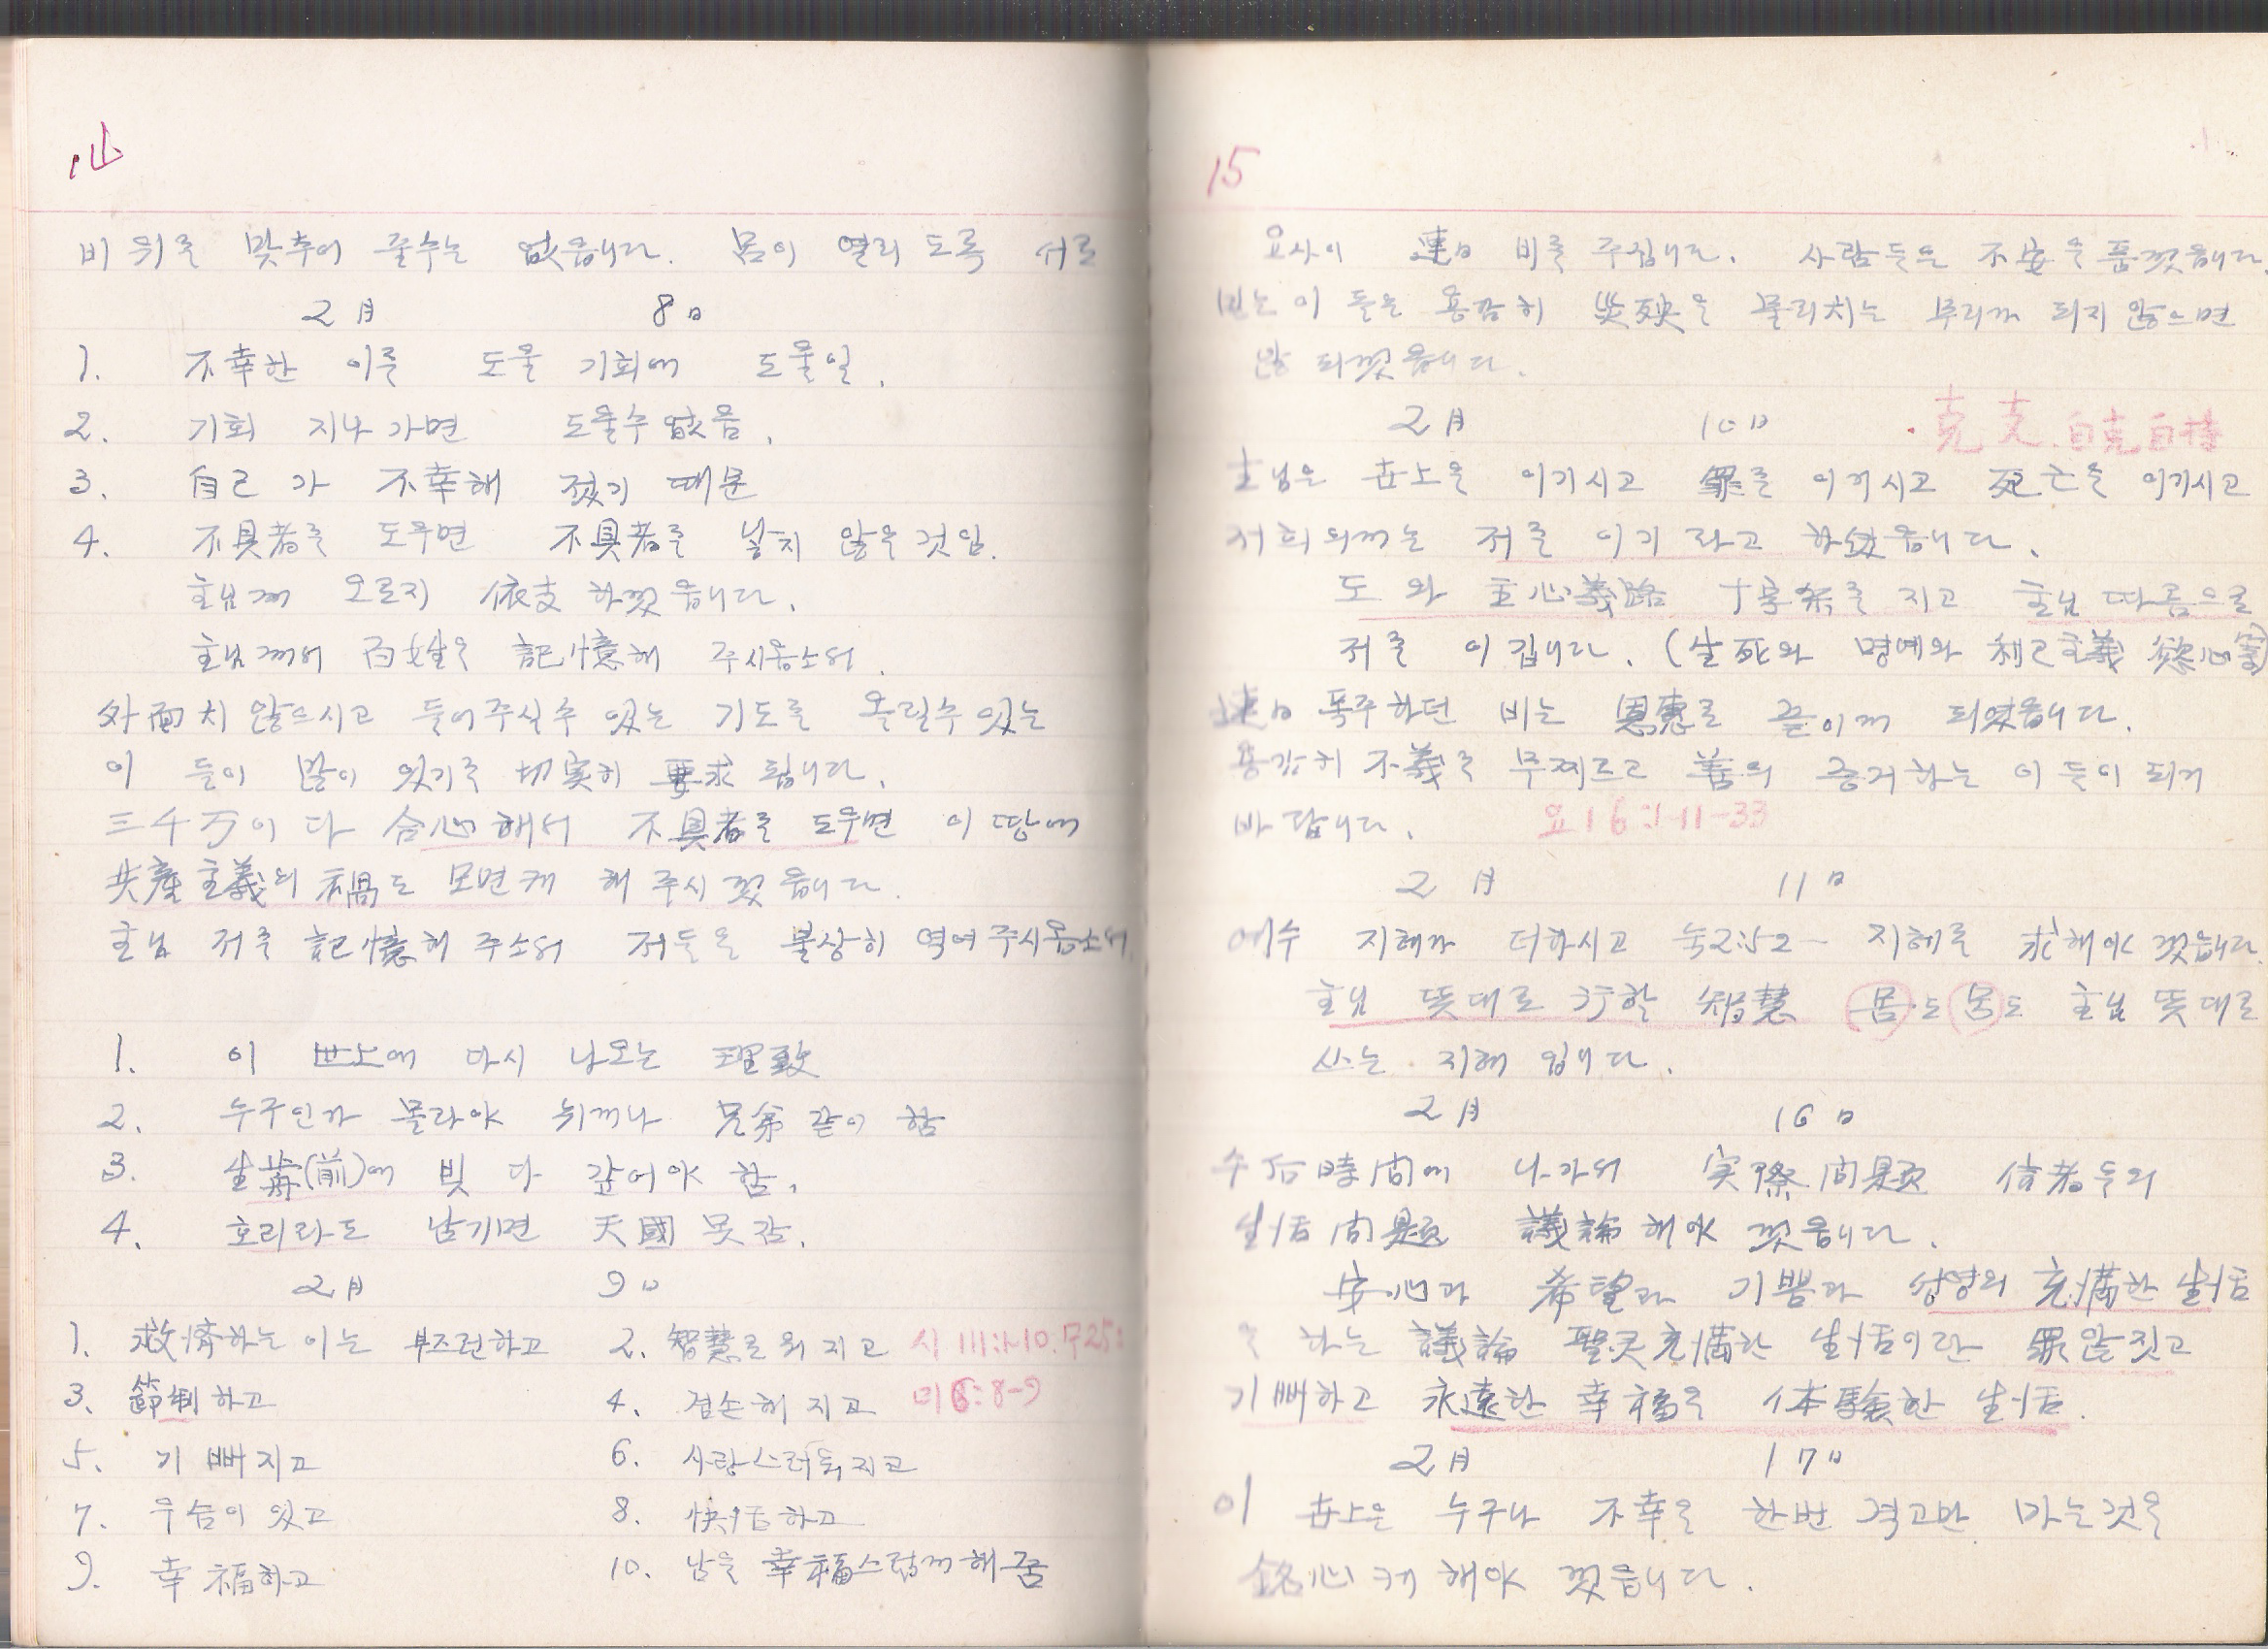 14
비위를 맞추어 줄수는 없읍니다. 몸이 열리도록 서로
2月 8日
1. 不幸한 이를 도울 기회에 도울일.
2. 기회 지나가면 도울수 없음.
3. 自己가 不幸해 졌기 때문
4. 不具者를 도우면 不具者를 낳지 않을것임.
主님께 오로지 依支하겠읍니다.
主님께서 百姓을 記憶해 주시옵소서.
外面치 않으시고 들어주실수 있는 기도를 올릴수 있는
이 들이 많이 있기를 切実히 要求 됩니다.
三千万이 다 合心해서 不具者를 도우면 이 땅에
共産主義의 禍도 모면케 해 주시겠읍니다.
主님 저를 記憶해 주소서 저들을 불상히 역여 주시옵소서.
1. 이 世上에 다시 나오는 理致
2. 누구인가 몰라야 뉘게나 兄弟같이 함
3. 生(前)에 빚 다 갚어야 함.
4. 호리라도 남기면 天國 못감.
2月 9日
1. 救濟하는 이는 부즈런하고 2. 智慧로워 지고 시 111:1-10.
3. 節制하고 4. 겸손해 지고 미6:8-9
5. 기뻐지고 6. 사랑스러워지고
7. 우슴이 있고 8. 快活하고
9. 幸福하고 10. 남을 幸福스럽게 해줌
15
요사이 連日 비를 주십니다. 사람들은 不安을 품겠읍니다.
믿는이 들은 용감히 災殃을 물리치는 무리가 되지 않으면
않 되겠읍니다.
2月 10日 克己. 自克自持
主님은 世上을 이기시고 罪를 이기시고 死亡을 이기시고
저희의게는 저를 이기라고 하셨읍니다.
도와 主心義路 十字架를 지고 主님 따름으로
저를 이깁니다. (生死와 명예와 利己主義 慾心
連日 폭주하던 비는 恩惠로 끝이게 되였읍니다.
용감히 不義를 무찌르고 善의 증거하는 이 들이 되기
바랍니다. 요16:1-11-33
2月 11日
예수 지혜가 더하시고 눅2:52- 지혜를 求해야 겠읍니다.
主님 뜻대로 行할 智慧 몸도 몸도 主님 뜻대로
쓰는 지혜 입니다.
2月 16日
수台時間에 나가서 実際問題 信者들의
生活問題 議論해야 겠읍니다.
安心과 希望과 기쁨과 성영의 充滿한 生活
을 하는 議論 聖灵充滿한 生活이란 罪 않짓고
기뻐하고 永遠한 幸福을 体験한 生活.
2月 17日
이 世上은 누구나 不幸을 한번 격고만 마는것을
銘心케 해야 겠읍니다.